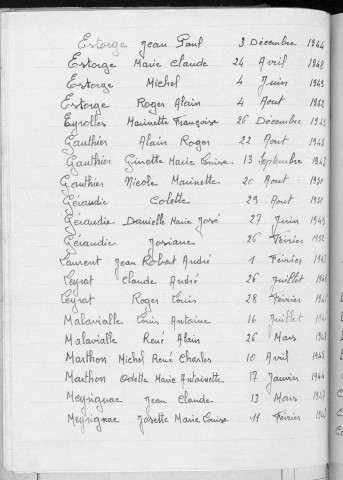 Estorge Jean Paul 3 Décembre 1944
Estorge Marie Claude 24 Avril 1948
Estorge Michel 4 Juin 1949
Estorge Roger Alain 4 Aout 1952
Eyrolles Marinette Françoise 26 Décembre
Gauthier Alain Roger 22 Aout
Gauthier Ginette Marie Louise 13 Septembre
Gauthier Nicole Marinette 20 Aout 1950
Géraudie Colette 29 Aout 1950
Géraudie Danielle Marie José 27 Juin 1949
Géraudie Josiane 26 Février 1952
Laurent Jean Robert André 1 Février
Leyrat Claude André 26 Juillet
Leyrat Roger Louis 28 Février
Malavialle Louis Antoine 16 Juillet
Malavialle René Alain 26 Mars
Marthon Michel René Charles 10 Avril
Marthon Odette Marie Antoinette 17 Janvier 1944
Meyrignac Jean Claude 13 Mars 1947
Meyrignac Josette Marie Louise 11 Février